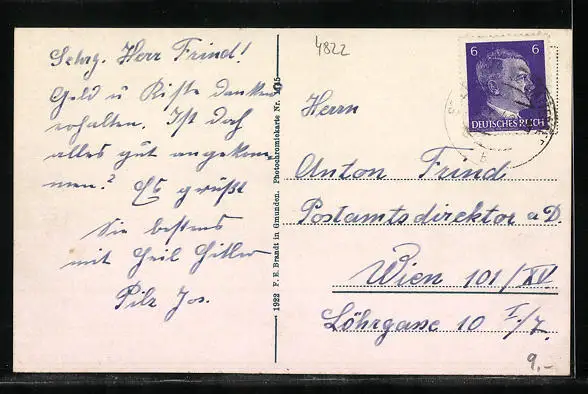 4822
Sehrg. Herr Frind!
Geld u Kiste dankend
erhalten. Ist doch
alles gut angekom-
men? Es grüßt
Sie bestens
mit Heil Hitler
Pilz Jos.
1922 F. E. Brandt in Gmunden. Photochromiekarte Nr.
6 6
DEUTSCHES REICH
Herrn
Anton Frind
Postamtsdirektor a D.
Wien 101/XV
Löhrgasse 10 I/7.
9,-